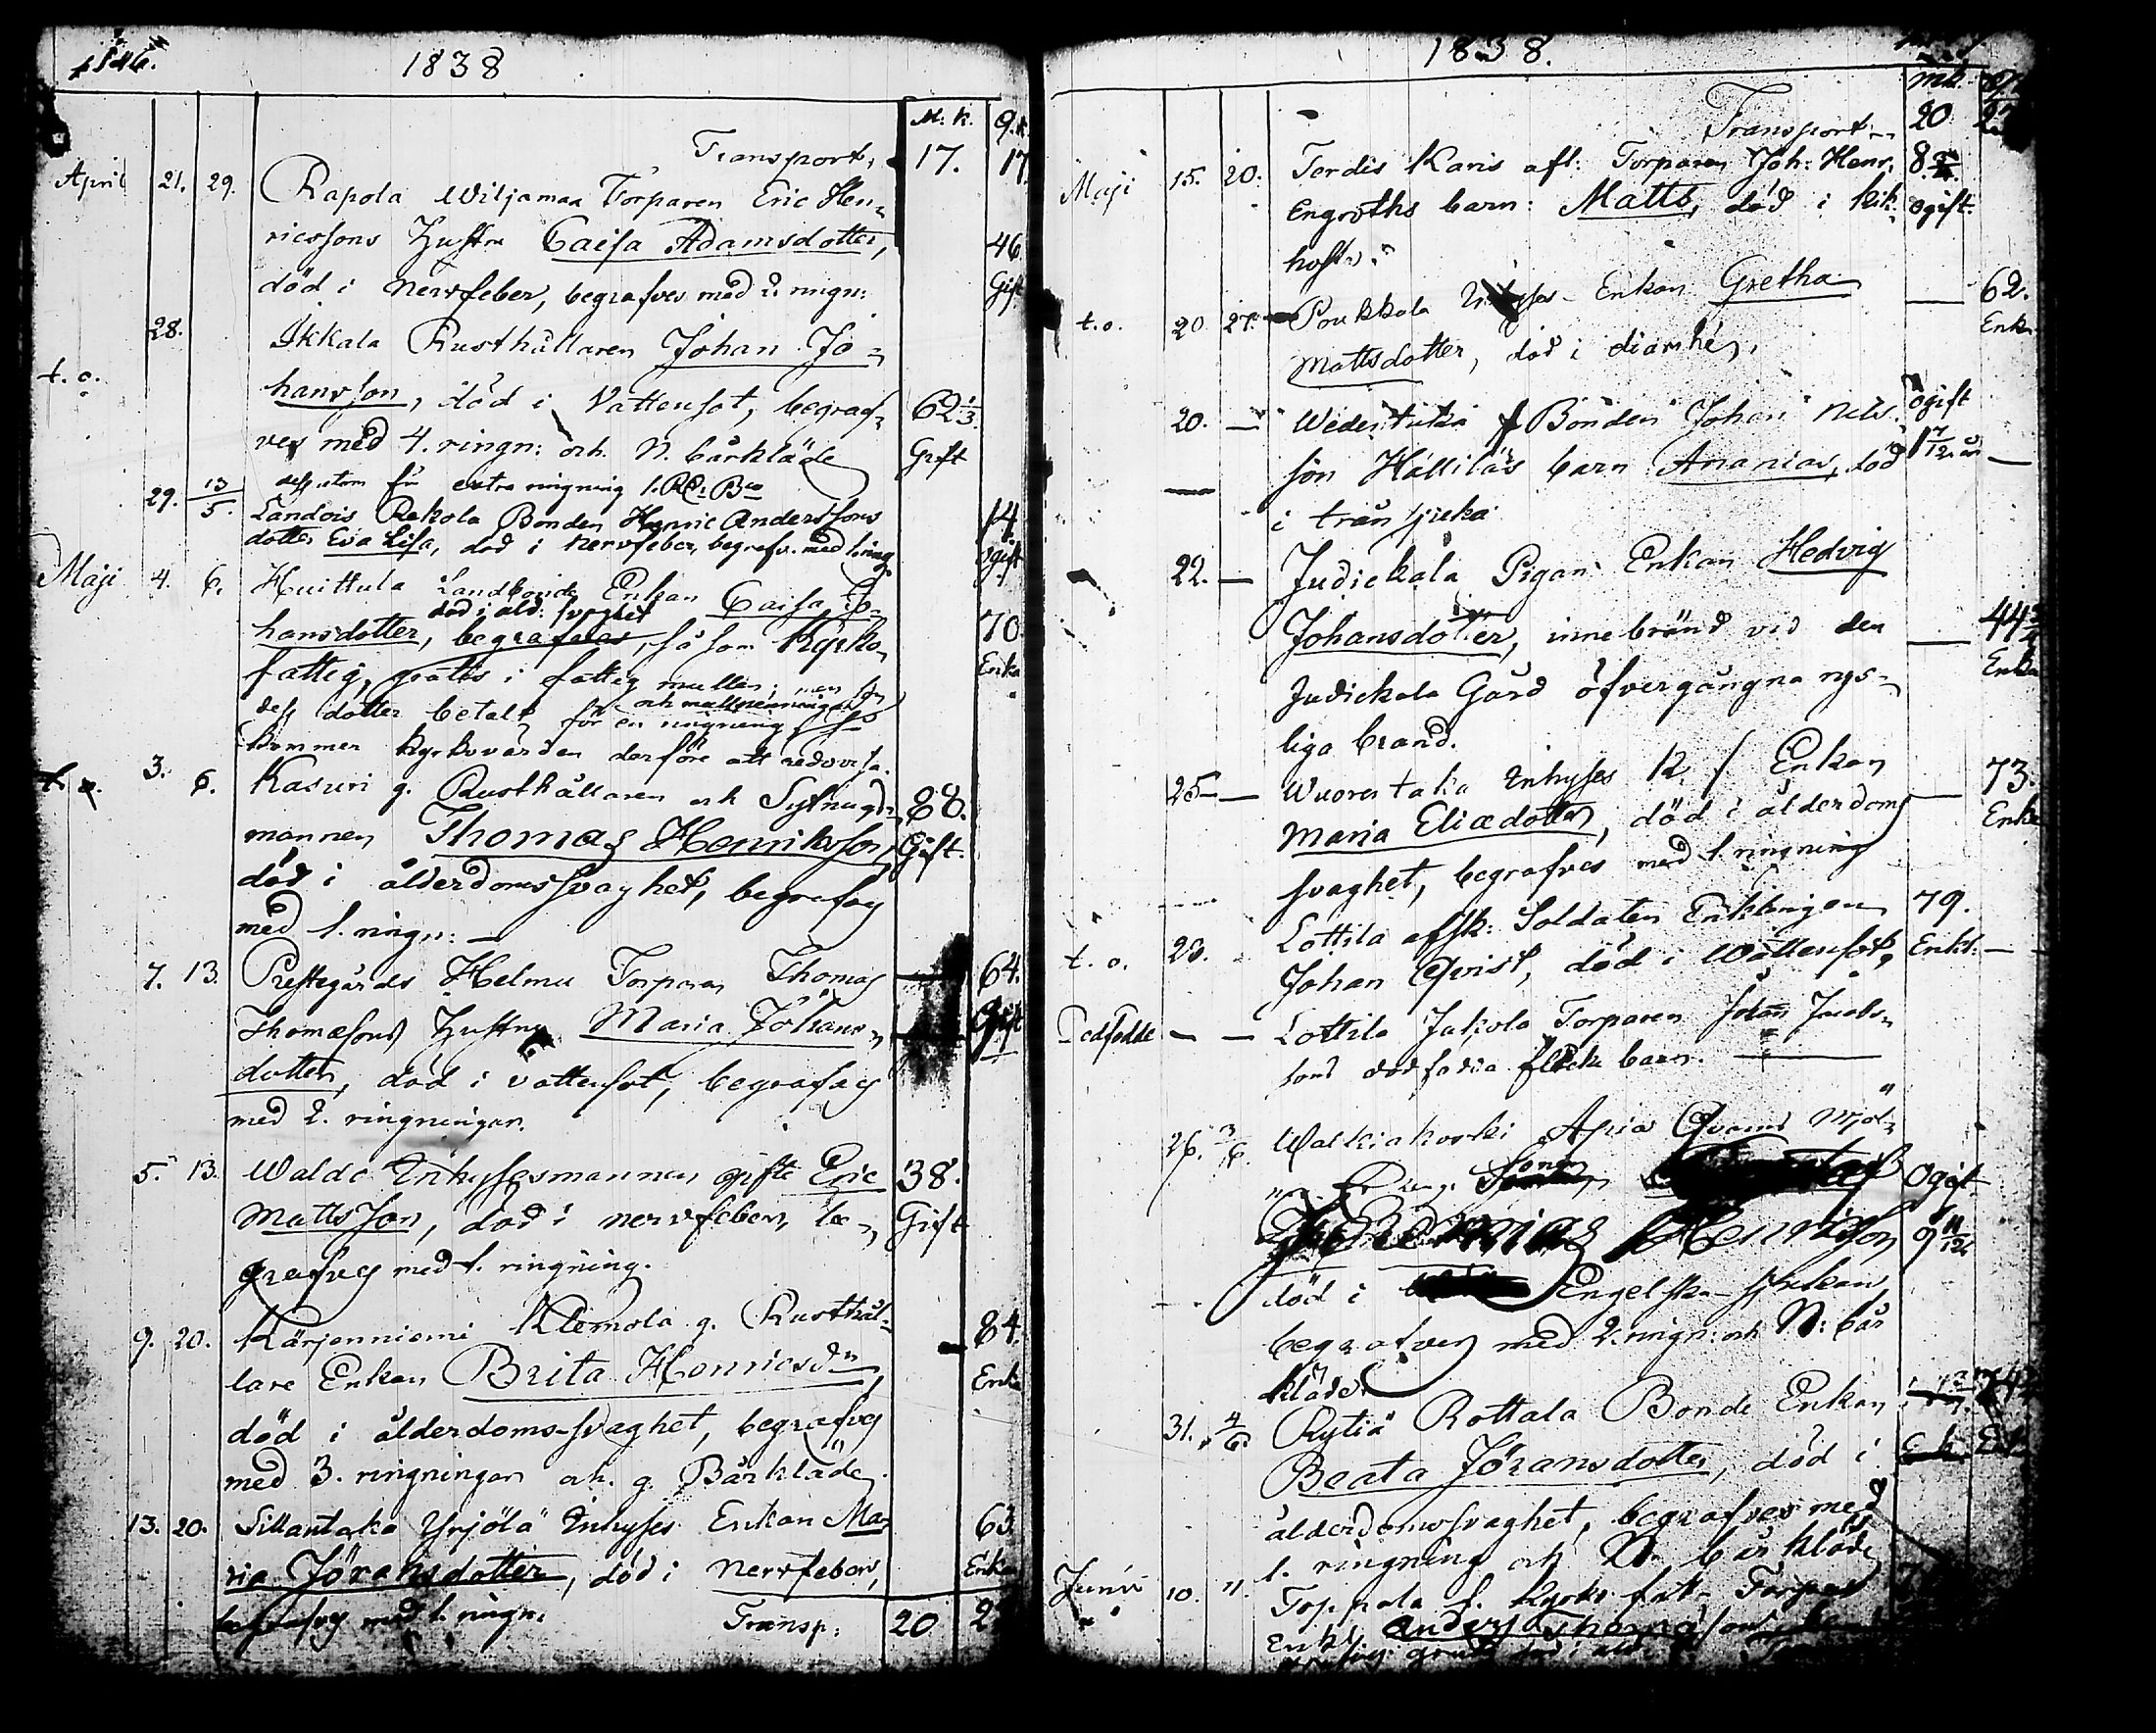 1838
M. k. Q. k.
Transport, 17. 17.
April 21. 29. Rapola Wiljamaa Torparen Eric Hen-
ricssons Hustru Caisa Adamsdotter, 46
död i Nervfeber, begrafves med 2. ringn: Gift
28. Ikkala Rusthållaren Johan Jo-
t. o.
hansson, död i Vattensot, begraf- 62 1/3
ves med 4. ringn: och N. bårkläde Gift
dessutom för extra ringning 1. Rd. Bco
29. 13/5. Landois Rekola Bonden Henric Anderssons 14.
dotter Eva Lisa, död i Nervfeber, begrafv. med 1. ring. Ogift
Maji 4. 6. Huittula Landbonde Enkan Caisa Jo-
död i åld: svaghet
hansdotter, begrafves, så som Kyrko- 70.
fattig, gratis i fattig mullen; men Enka
och mullpenningar
dess dotter betalt för en ringning, so
kommer kyrkovärden derföre att redovisa.
3. 6. Kasuri g. Rusthållaren och Sexman- 88.
mannen Thomas Henriksson, Gift.
död i ålderdomssvaghet, begrafves
med 1. ringn:
7. 13. Prestegårds Helmu Torparen Thomas 64.
Thomæsons Hustru Maria Johans- Gift
dotter, död i vattensot, begrafves
med 2. ringningar.
5. 13. Waldo Inhysesmannen gifte Eric 38.
Mattsson, död i nervfeber, be- Gift
grafves med 1. ringning.
9. 20. Kärjenniemi Klemola g. Rusthål- 84.
lare Enkan Brita Henricsdr, Enka
död i ålderdoms-svaghet, begrafves
med 3. ringningar och g. Bårkläde.
13. 20. Sillantaka Yrjölä Inhyses Enkan Ma- 63
ria Jöransdotter, död i Nervfeber, Enka
begrafves med 1. ringn. Transp: 20
1838.
mk.
Transport 20
Maji 15. 20. Tordis Karis afl: Torparen Joh: Henr. 8.
Engroths barn: Matts, död i kik- ogift.
hosta.
t. o. 20 27. Poukkola Enkan Gretha 62.
Mattsdotter, död i diarrhé. Enka
20. — Wedentaka Bonden Johan Nils- Ogift
son Hällilä's barn Ananias, död 1 7/12 år —
i trånsjuka
22. — Judickala Pigan Enkan Hedvig
Johansdotter, innebränd vid den 44
Judickala Gård öfvergångna rys- Enka
liga brand.
25 — Wuorentaka Inhyses Enkan 73.
Maria Eliædotter, död i ålderdoms Enka
svaghet, begrafves med 1. ringning
t. o. 28. Lottila afsk: Soldaten Enklingen 79.
Johan Qvist, död i Wattensot, Enkl. —
Dödfödde — — Lottila Jakola Torparen Johan Jacobs-
sons dödfödda flicke barn.
26. 3/6. Walkiakoski Apia Qvarns Mjöl-
Sonen Ogift
Jeremias Henricson 9 11/12
död i Engelska-sjukan,
begrafves med 2. ringn: och N: bår
kläde.
31. 4/6. Rytiä Rottala Bonde Enkan
Beata Jöransdotter, död i
ålderdomssvaghet, begrafves med
1. ringning och N. bårkläde
Junii 10. " f. Torpare
Enkl. Anders Thomasson